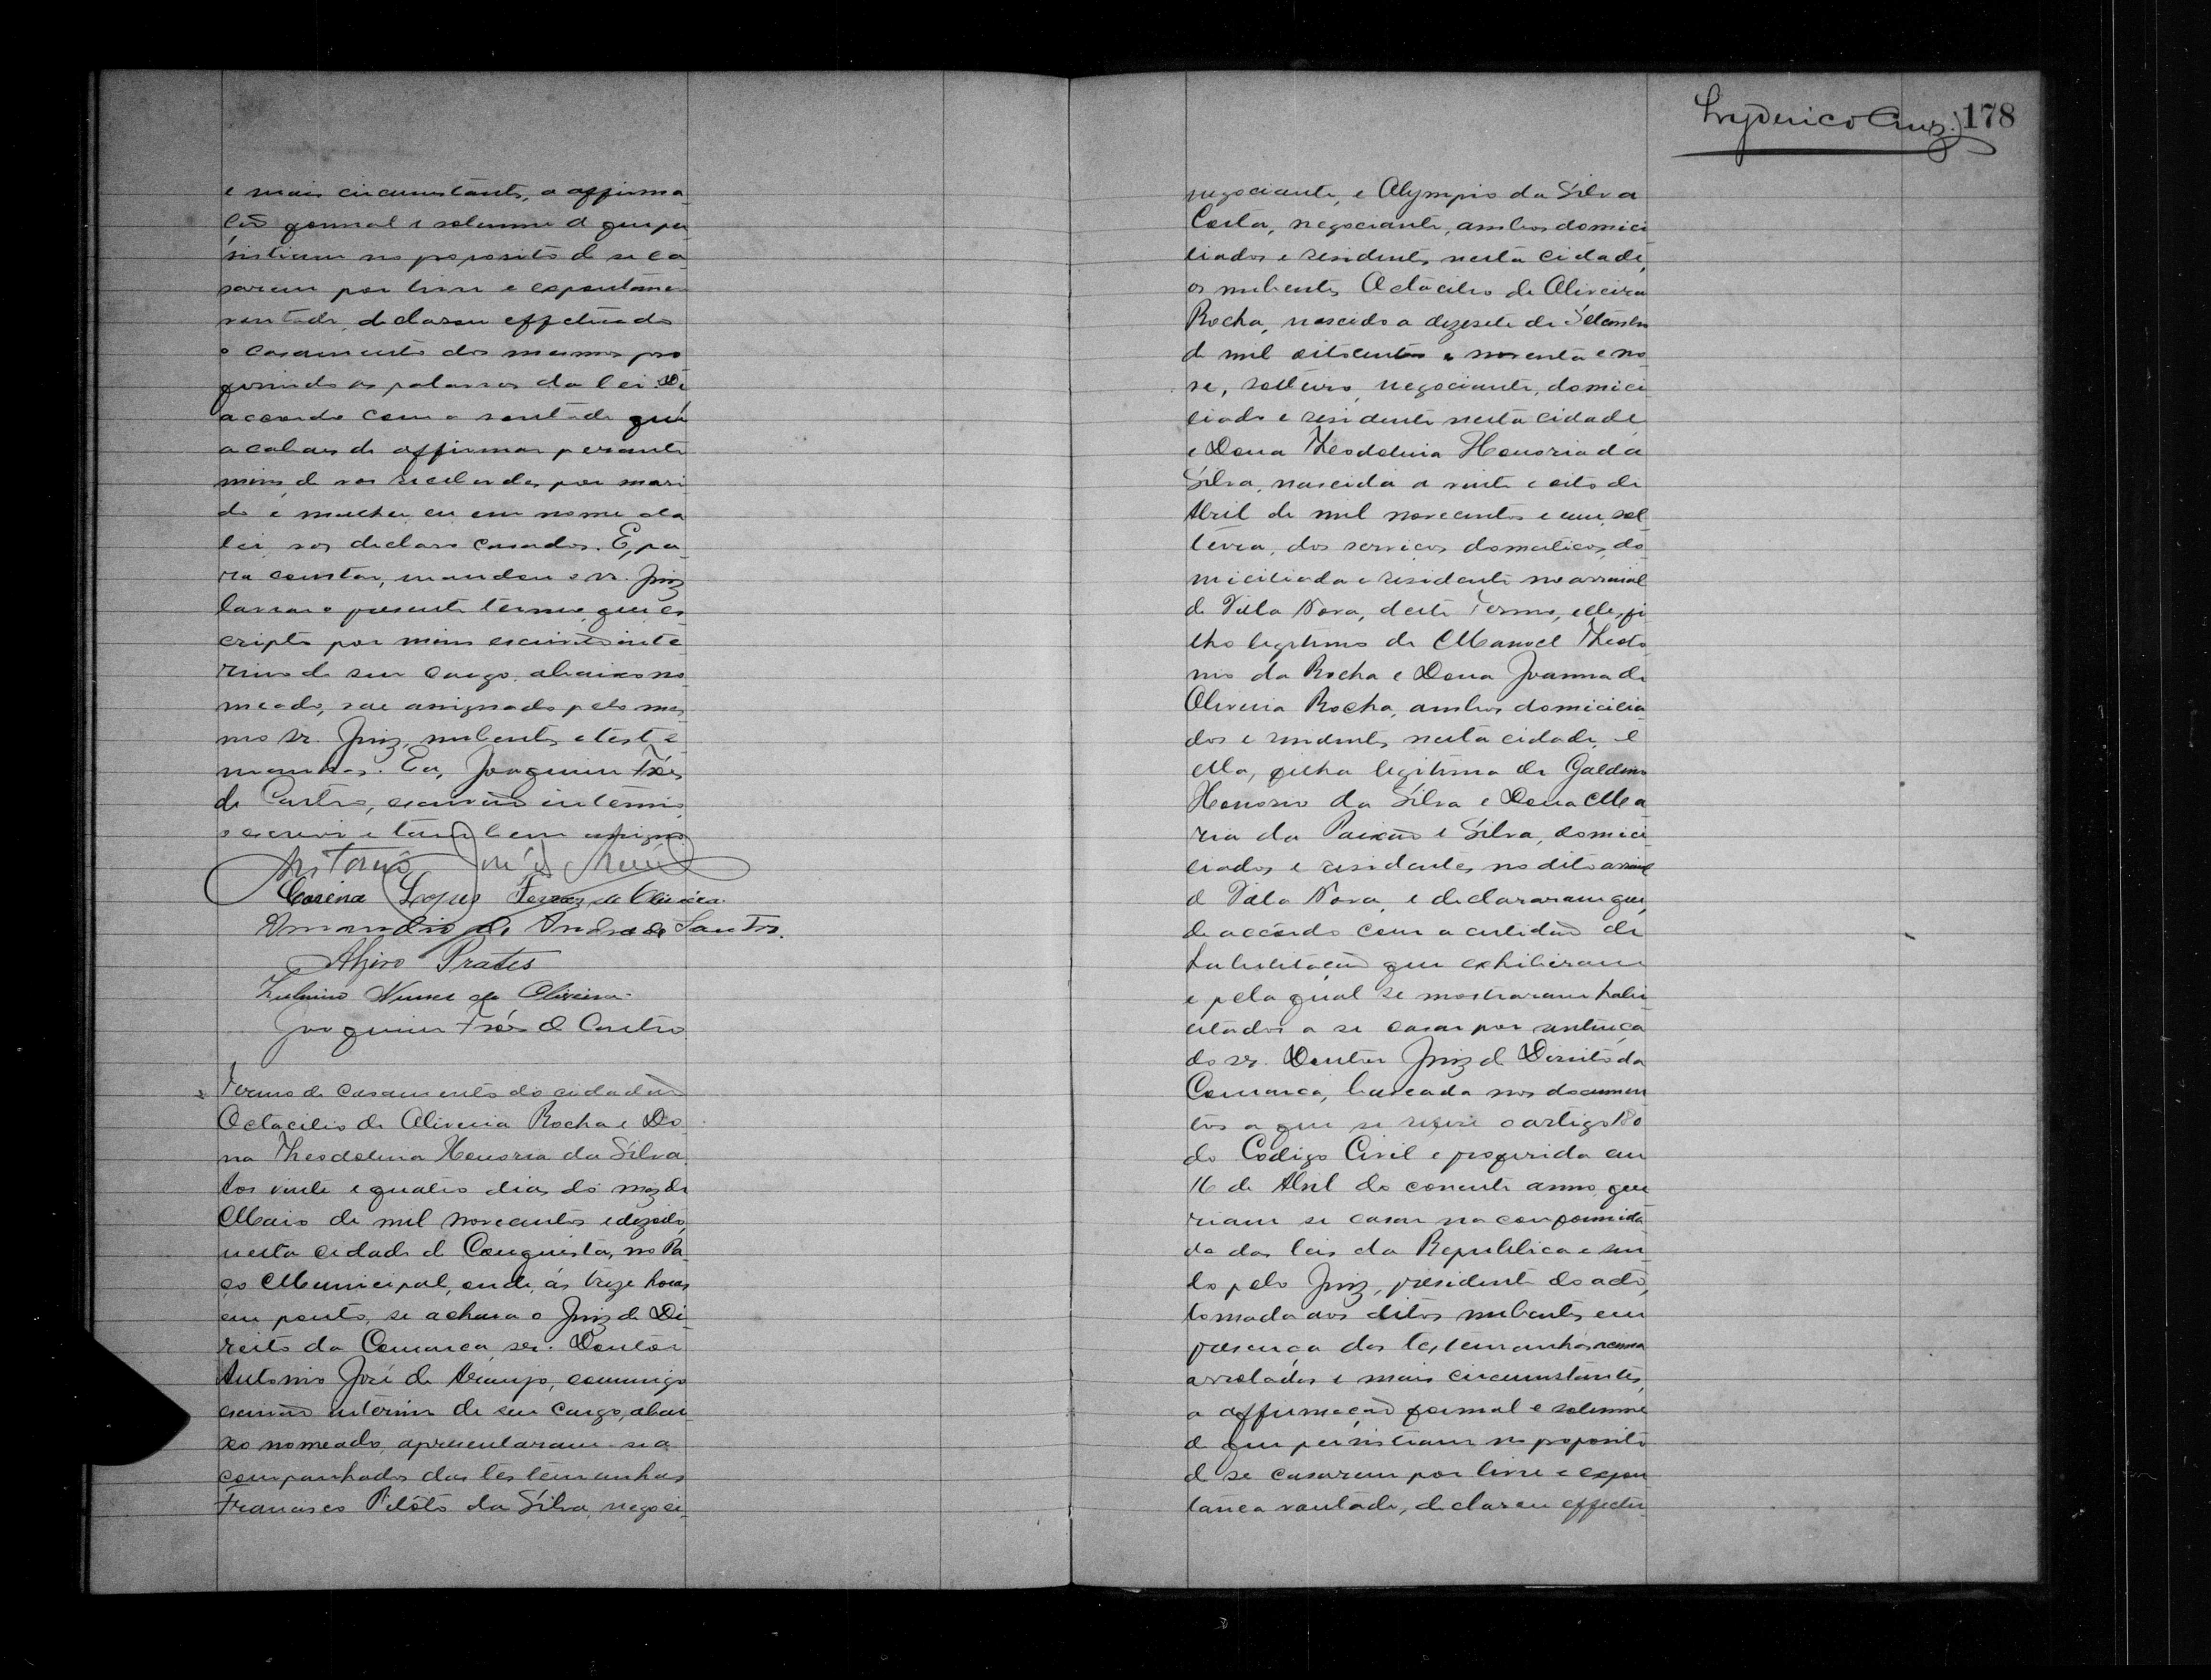 e mais circumstantes, a affirma
ção formal e solemne de que per
sistiam no proposito de se ca
sarem por livre e expontanea
vontade, declarou effectuado
o casamento dos mesmos pro
ferindo as palavras da lei: De
accordo com a vontade que
acabaes de affirmar perante
mim, de vos receberdes por mari
do e mulher, eu em nome da
lei vos declaro casados. E, pa
ra constar, mandou o sr. Juiz
lavrar o presente termo, que es
cripto por mim escrivão inte
rino de seu cargo, abaixo no
meado, vae assignado pelo mes
mo sr. Juiz, nubentes e teste
munhas. Eu, Joaquim Fróes
de Castro, escrivão interino,
o escrevi e tambem assigno.
Antonio José de
Corina Lopes Ferraz de Oliveira
de Andrade Santos.
Alziro Prates
Zulmiro Nunes de Oliveira.
Joaquim Fróes de Castro
Termo de casamento do cidadão
Octacilio de Oliveira Rocha e Do
na Theodolina Honoria da Silva.
Aos vinte e quatro dias do mez de
Maio de mil novecentos e dezoito,
nesta cidade de Conquista, no Pa
ço Municipal, onde, ás treze horas
em ponto, se achava o Juiz de Di
reito da Comarca, sr. Doutor
Antonio José de Araujo, commigo
escrivão interino de seu cargo, abai
xo nomeado, apresentaram-se a
companhados das testemunhas
Francisco Pilôto da Silva, negoci
Lryderico Cruz. 178
negociante, e Olympio da Silva
Costa, negociante, ambos domici
liados e residentes nesta cidade,
os nubentes Octacilio de Oliveira
Rocha, nascido a dezesete de Setembro
de mil oitocentos e noventa e no
ve, solteiro, negociante, domici
liado e residente nesta cidade
e Dona Theodolina Honoria da
Silva, nascida a vinte e oito de
Abril de mil novecentos e um, sol
teira, dos serviços domesticos, do
miciliada e residente no arraial
de Villa Nova, deste Termo, elle, fi
lho legitimo de Manoel Theoto
nio da Rocha e Dona Joanna de
Oliveira Rocha, ambos domicilia
dos e residentes nesta cidade, e
ella, filha legitima de Galdino
Honorio da Silva e Dona Ma
ria da Paixão e Silva, domici
liados e residentes no dito arraial
de Villa Nova, e declararam que,
de accôrdo com a certidão de
habilitação que exhibiram
e pela qual se mostraram habi
litados a se casar por sentença
do sr. Doutor Juiz de Direito da
Comarca, baseada nos documen
tos a que se refere o artigo 180
do Codigo Civil e proferida em
16 de Abril do corrente anno, que
riam se casar na conformida
de das leis da Republica e sen
do pelo Juiz, presidente do acto,
tomada aos ditos nubentes em
presença das testemunhas acima
arroladas e mais circumstantes,
a affirmação formal e solemne
de que persistiam no proposito
de se casarem por livre e expon
tanea vontade, declarou effectu